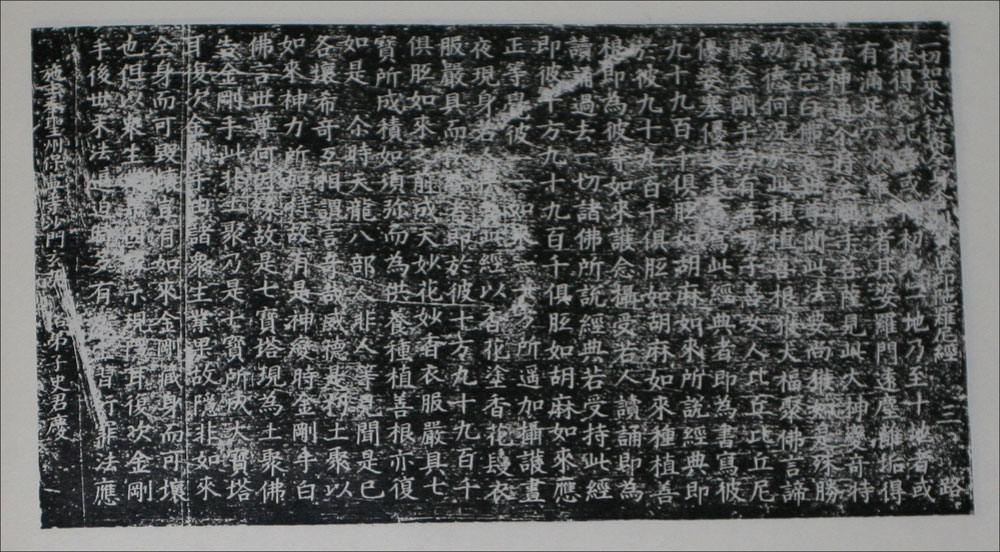 一切如來心秘密全身舍利寶篋印陀羅尼經 三 路
從得授記或初地二地乃至十地者或
有滿足六波羅蜜者其婆羅門遠塵離垢得
五神通尒時金剛手菩薩見此大神變奇特
事已白佛言世尊聞此法要尚獲如是殊勝
功德何況於此種植善根獲大福聚佛言諦
聽金剛手若有善男子善女人比丘比丘尼
優婆塞優婆夷書寫此經典者即為書寫彼
九十九百千俱胝如胡麻如來所說經典即
於彼九十九百千俱胝如胡麻如來種植善
根即為彼等如來護念攝受若人讀誦即為
讀誦過去一切諸佛所說經典若受持此經
即彼十方九十九百千俱胝如胡麻如來應
正等覺彼一一如來一一方所遙加攝護晝
夜現身若人供養此經以香花塗香花鬘衣
服嚴具而供養者即於彼十方九十九百千
俱胝如來之前成天妙花妙香衣服嚴具七
寶所成積如須弥而為供養種植善根亦復
如是尒時天龍八部人非人等見聞是已
各懷希奇互相謂言奇哉威德是朽土聚以
如來神力所加持故有是神變時金剛手白
佛言世尊何因緣故是七寶塔現為土聚佛
告金剛手此非土聚乃是七寶所成大寶塔
耳復次金剛手由諸衆生業果故隱非如來
全身而可毀壞豈有如來金剛藏身而可壞
也但以衆生業果因緣示現隱耳復次金剛
手後世末法逼迫時多有衆生習行非法應
施主 州保 寺沙門玄 弟子史君慶